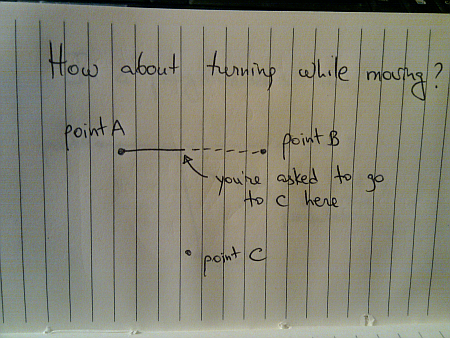 How about turning while moving?
point A
point B
you're asked to go
to C here
point C